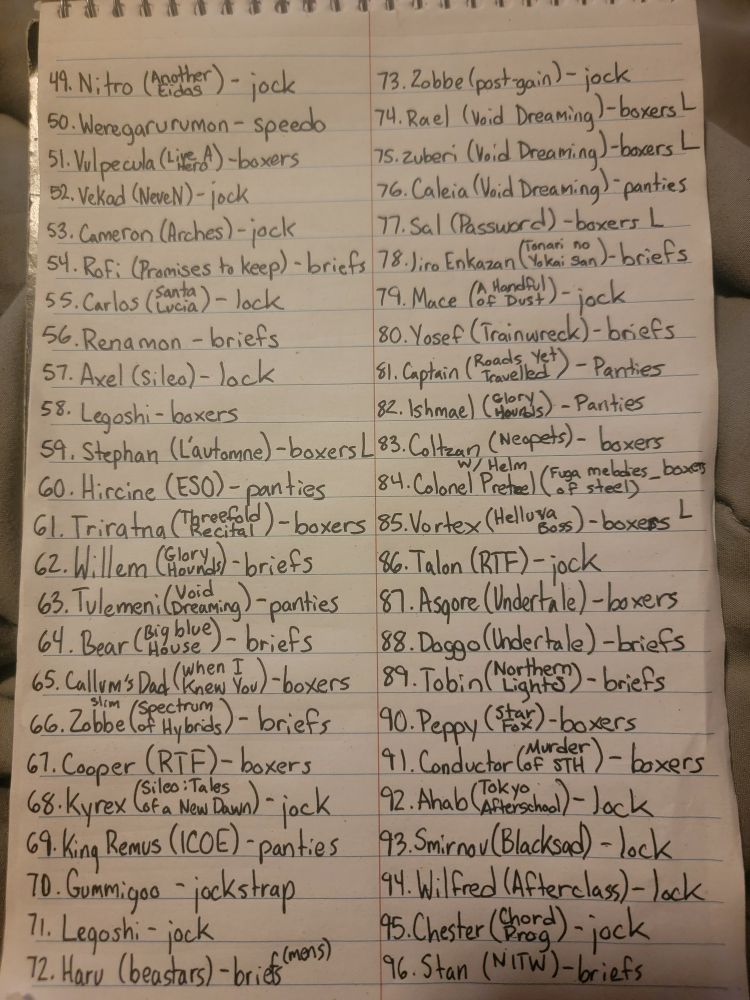 49. Nitro (Another Eidos) - jock
50. Weregarurumon - speedo
51. Vulpecula (Live A Hero) - boxers
52. Vekad (NeveN) - jock
53. Cameron (Arches) - jock
54. Rofi (Promises to keep) - briefs
55. Carlos (Santa Lucia) - lock
56. Renamon - briefs
57. Axel (Sileo) - lock
58. Legoshi - boxers
59. Stephan (L'automne) - boxers L
60. Hircine (ESO) - panties
61. Triratna (Threefold Recital) - boxers
62. Willem (Glory Hounds) - briefs
63. Tulemeni (Void Dreaming) - panties
64. Bear (Big blue House) - briefs
65. Callum's Dad (When I Knew You) - boxers
66. slim Zobbe (Spectrum of Hybrids) - briefs
67. Cooper (RTF) - boxers
68. Kyrex (Sileo: Tales of a New Dawn) - jock
69. King Remus (ICOE) - panties
70. Gummigoo - jockstrap
71. Legoshi - jock
72. Haru (beastars) - briefs (mens)
73. Zobbe (post-gain) - jock
74. Rael (Void Dreaming) - boxers L
75. Zuberi (Void Dreaming) - boxers L
76. Caleia (Void Dreaming) - panties
77. Sal (Password) - boxers L
78. Jiro Enkazan (Tonari no Yokai San) - briefs
79. Mace (A Handful of Dust) - jock
80. Yosef (Trainwreck) - briefs
81. Captain (Roads Yet Travelled) - Panties
82. Ishmael (Glory Hounds) - Panties
83. Coltzan (Neopets) - boxers
84. Colonel Pretzel w/ Helm (Fuga melodies of steel) - boxers
85. Vortex (Helluva Boss) - boxers L
86. Talon (RTF) - jock
87. Asgore (Undertale) - boxers
88. Doggo (Undertale) - briefs
89. Tobin (Northern Lights) - briefs
90. Peppy (Star Fox) - boxers
91. Conductor (Murder of STH) - boxers
92. Ahab (Tokyo Afterschool) - lock
93. Smirnov (Blacksad) - lock
94. Wilfred (Afterclass) - lock
95. Chester (Chord Prog) - jock
96. Stan (NITW) - briefs